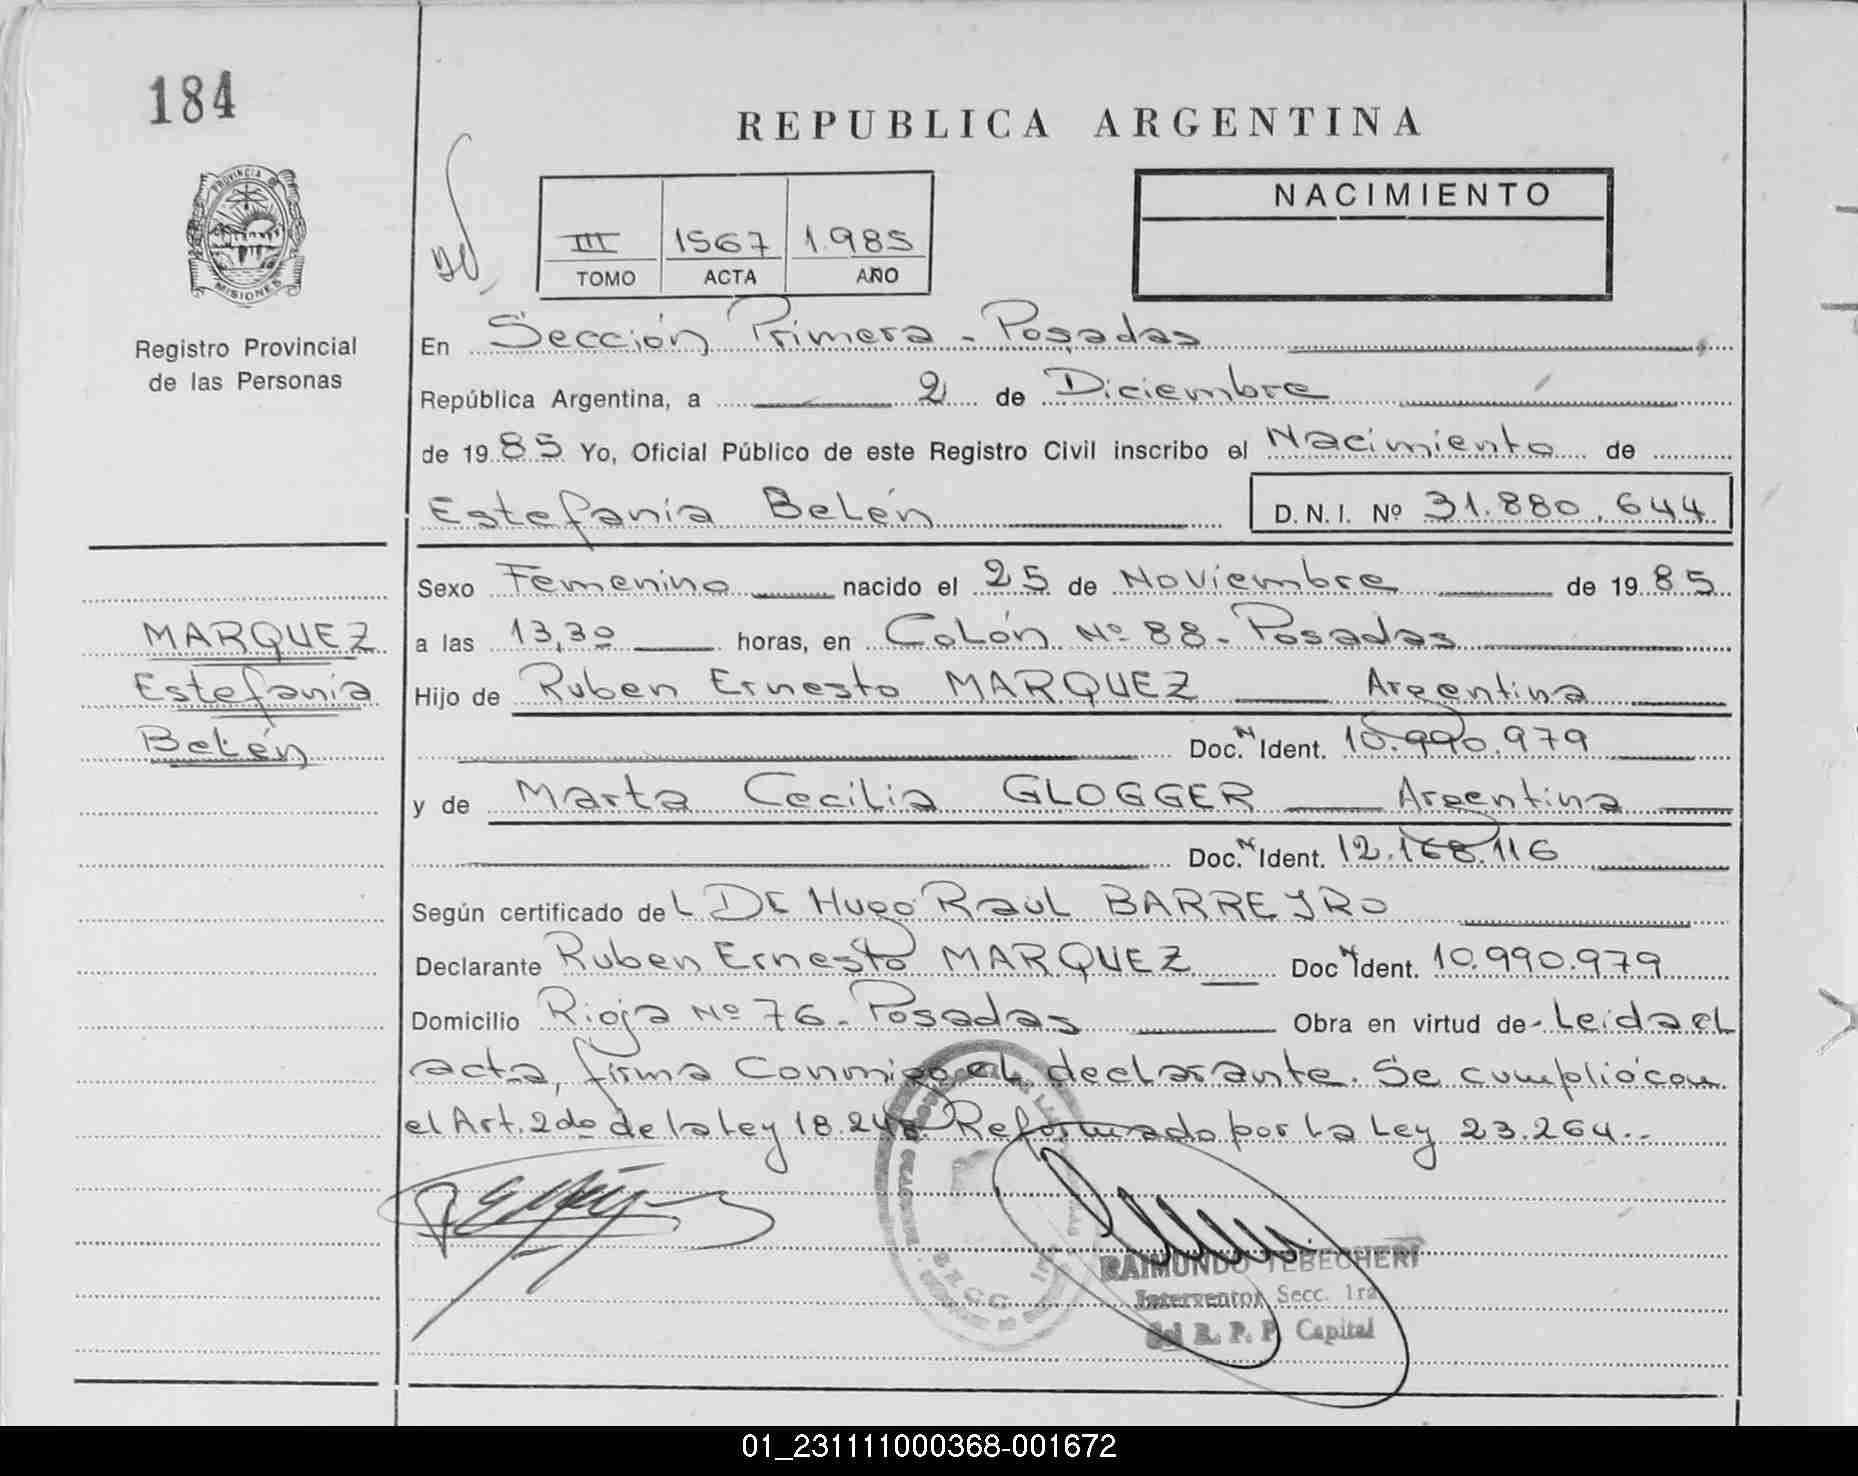 184
REPUBLICA ARGENTINA
PROVINCIA DE
MISIONES
Registro Provincial
de las Personas
III 1567 1.985
TOMO ACTA AÑO
NACIMIENTO
En Sección Primera - Posadas
República Argentina, a 2 de Diciembre
de 1985 Yo, Oficial Público de este Registro Civil inscribo el Nacimiento de
Estefanía Belén D. N. I. Nº 31.880.644
Sexo Femenino nacido el 25 de Noviembre de 1985
MARQUEZ
Estefanía
Belén
a las 13,30 horas, en Colón Nº 88 - Posadas
Hijo de Ruben Ernesto MARQUEZ Argentina
Doc. N Ident. 10.990.979
y de Marta Cecilia GLOGGER Argentina
Doc. N Ident. 12.168.116
Según certificado del Dr Hugo Raul BARREYRO
Declarante Ruben Ernesto MARQUEZ Doc N Ident. 10.990.979
Domicilio Rioja Nº 76 - Posadas Obra en virtud de - Leída el
acta, firma conmigo el declarante. Se cumplió con
el Art. 2do de la Ley 18.248. Reformado por la Ley 23.264.-
RAIMUNDO TEBECHERI
Interventor Secc. 1ra
del R. P. P. Capital
01_231111000368-001672